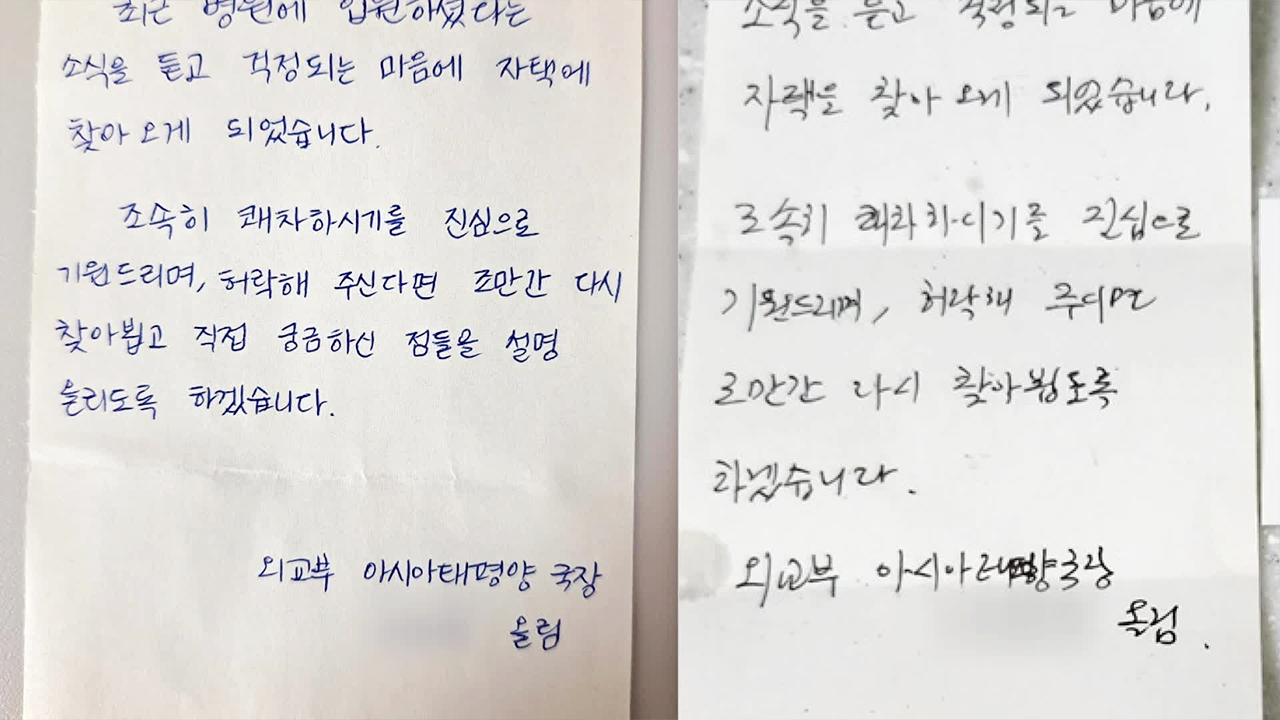 최근 병원에 입원하셨다는
소식을 듣고 걱정되는 마음에 자택에
찾아오게 되었습니다.
조속히 쾌차하시기를 진심으로
기원드리며, 허락해 주신다면 조만간 다시
찾아뵙고 직접 궁금하신 점들을 설명
올리도록 하겠습니다.
외교부 아시아태평양 국장
올림
소식을 듣고 걱정되는 마음에
자택을 찾아오게 되었습니다.
조속히 쾌차하시기를 진심으로
기원드리며, 허락해 주시면
조만간 다시 찾아뵙도록
하겠습니다.
외교부 아시아태평양국장
올림.